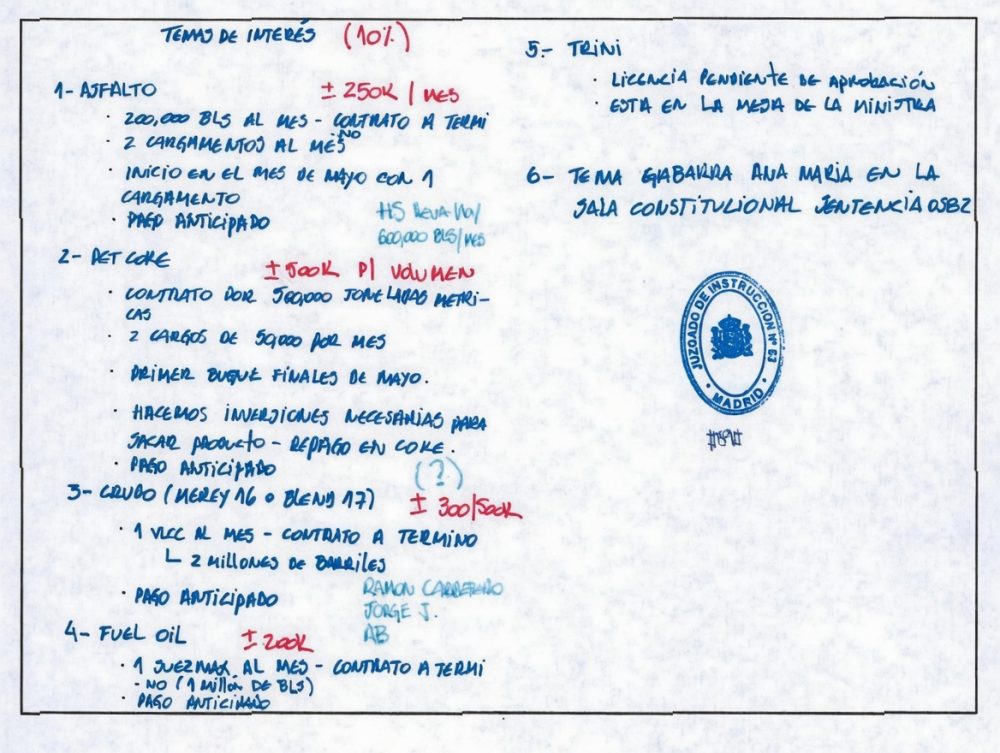 TEMAS DE INTERÉS (10%)
1- ASFALTO ± 250K / MES
· 200,000 BLS AL MES - CONTRATO A TERMI
NO
· 2 CARGAMENTOS AL MES
· INICIO EN EL MES DE MAYO CON 1
CARGAMENTO
· PAGO ANTICIPADO
HS
600,000 BLS/MES
2- PET CORE ± 500K P/ VOLUMEN
· CONTRATO POR 500,000 TONELADAS METRI-
CAS
· 2 CARGOS DE 50,000 POR MES
· PRIMER BUQUE FINALES DE MAYO.
· HACEMOS INVERSIONES NECESARIAS PARA
SACAR PRODUCTO - REPAGO EN COKE.
· PAGO ANTICIPADO
(?)
3- CRUDO (MEREY 16 o BLEND 17) ± 300/500K
· 1 VLCC AL MES - CONTRATO A TERMINO
└ 2 MILLONES DE BARRILES
· PAGO ANTICIPADO
RAMON CARRETERO
JORGE J.
AB
4- FUEL OIL ± 200K
· 1 SUEZMAX AL MES - CONTRATO A TERMI
- NO (1 MILLON DE BLS)
· PAGO ANTICIPADO
5.- TRINI
· LICENCIA PENDIENTE DE APROBACIÓN
· ESTA EN LA MESA DE LA MINISTRA
6- TEMA GABARRA ANA MARIA EN LA
SALA CONSTITUCIONAL SENTENCIA 0582
JUZGADO DE INSTRUCCION Nº 63
· MADRID ·